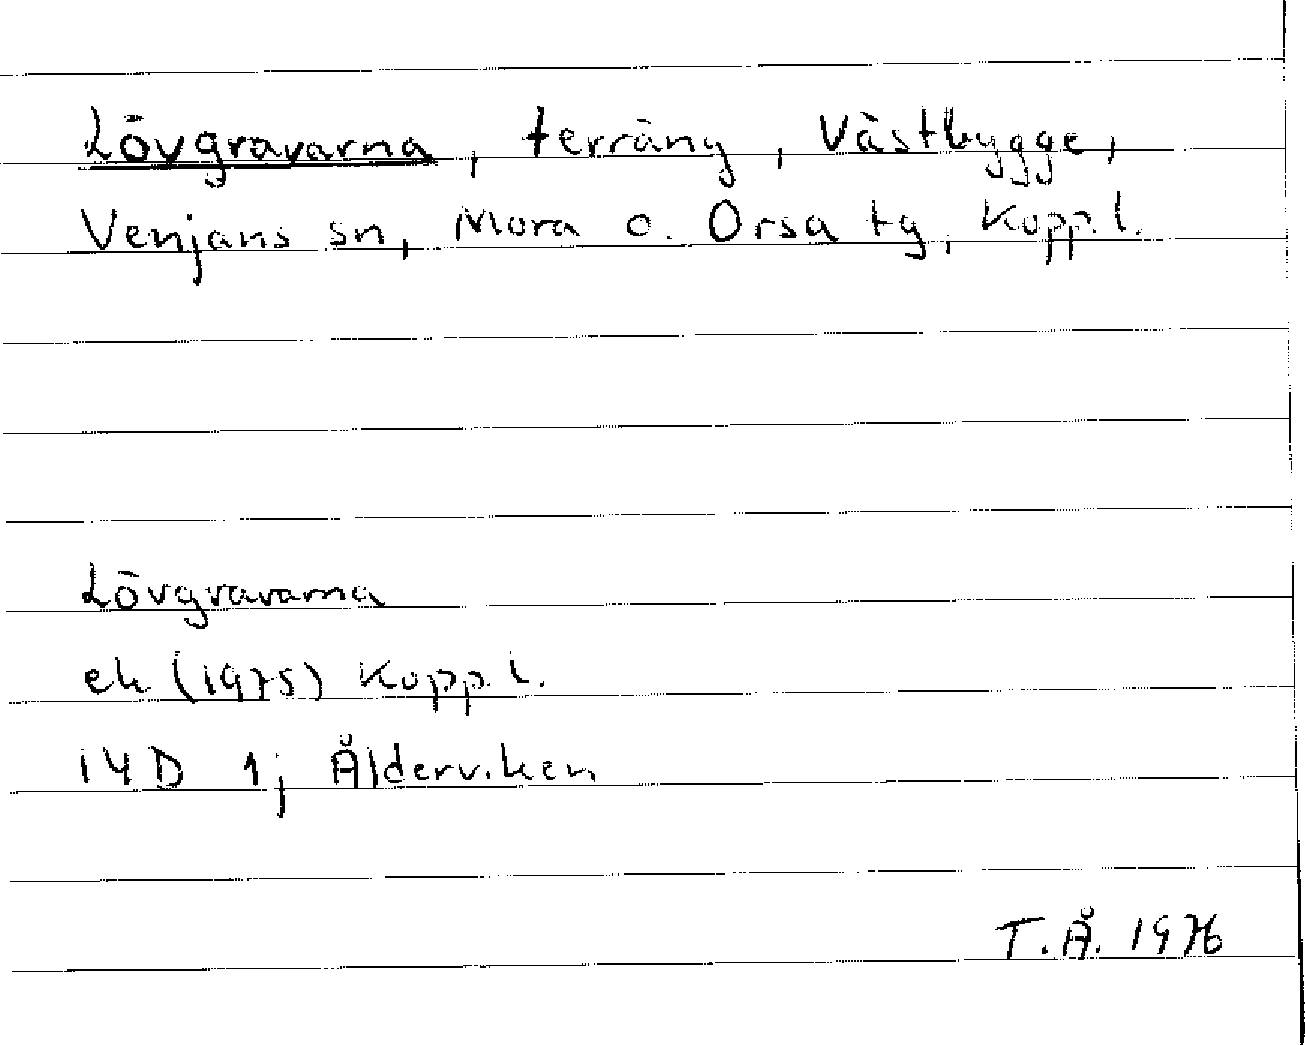 Lövgravarna, terräng, Västbygge,
Venjans sn, Mora o. Orsa tg, Kopp. l.
Lövgravarna
ek (1975) Kopp. l.
14D 1j Ålderviken
T.Å. 1976